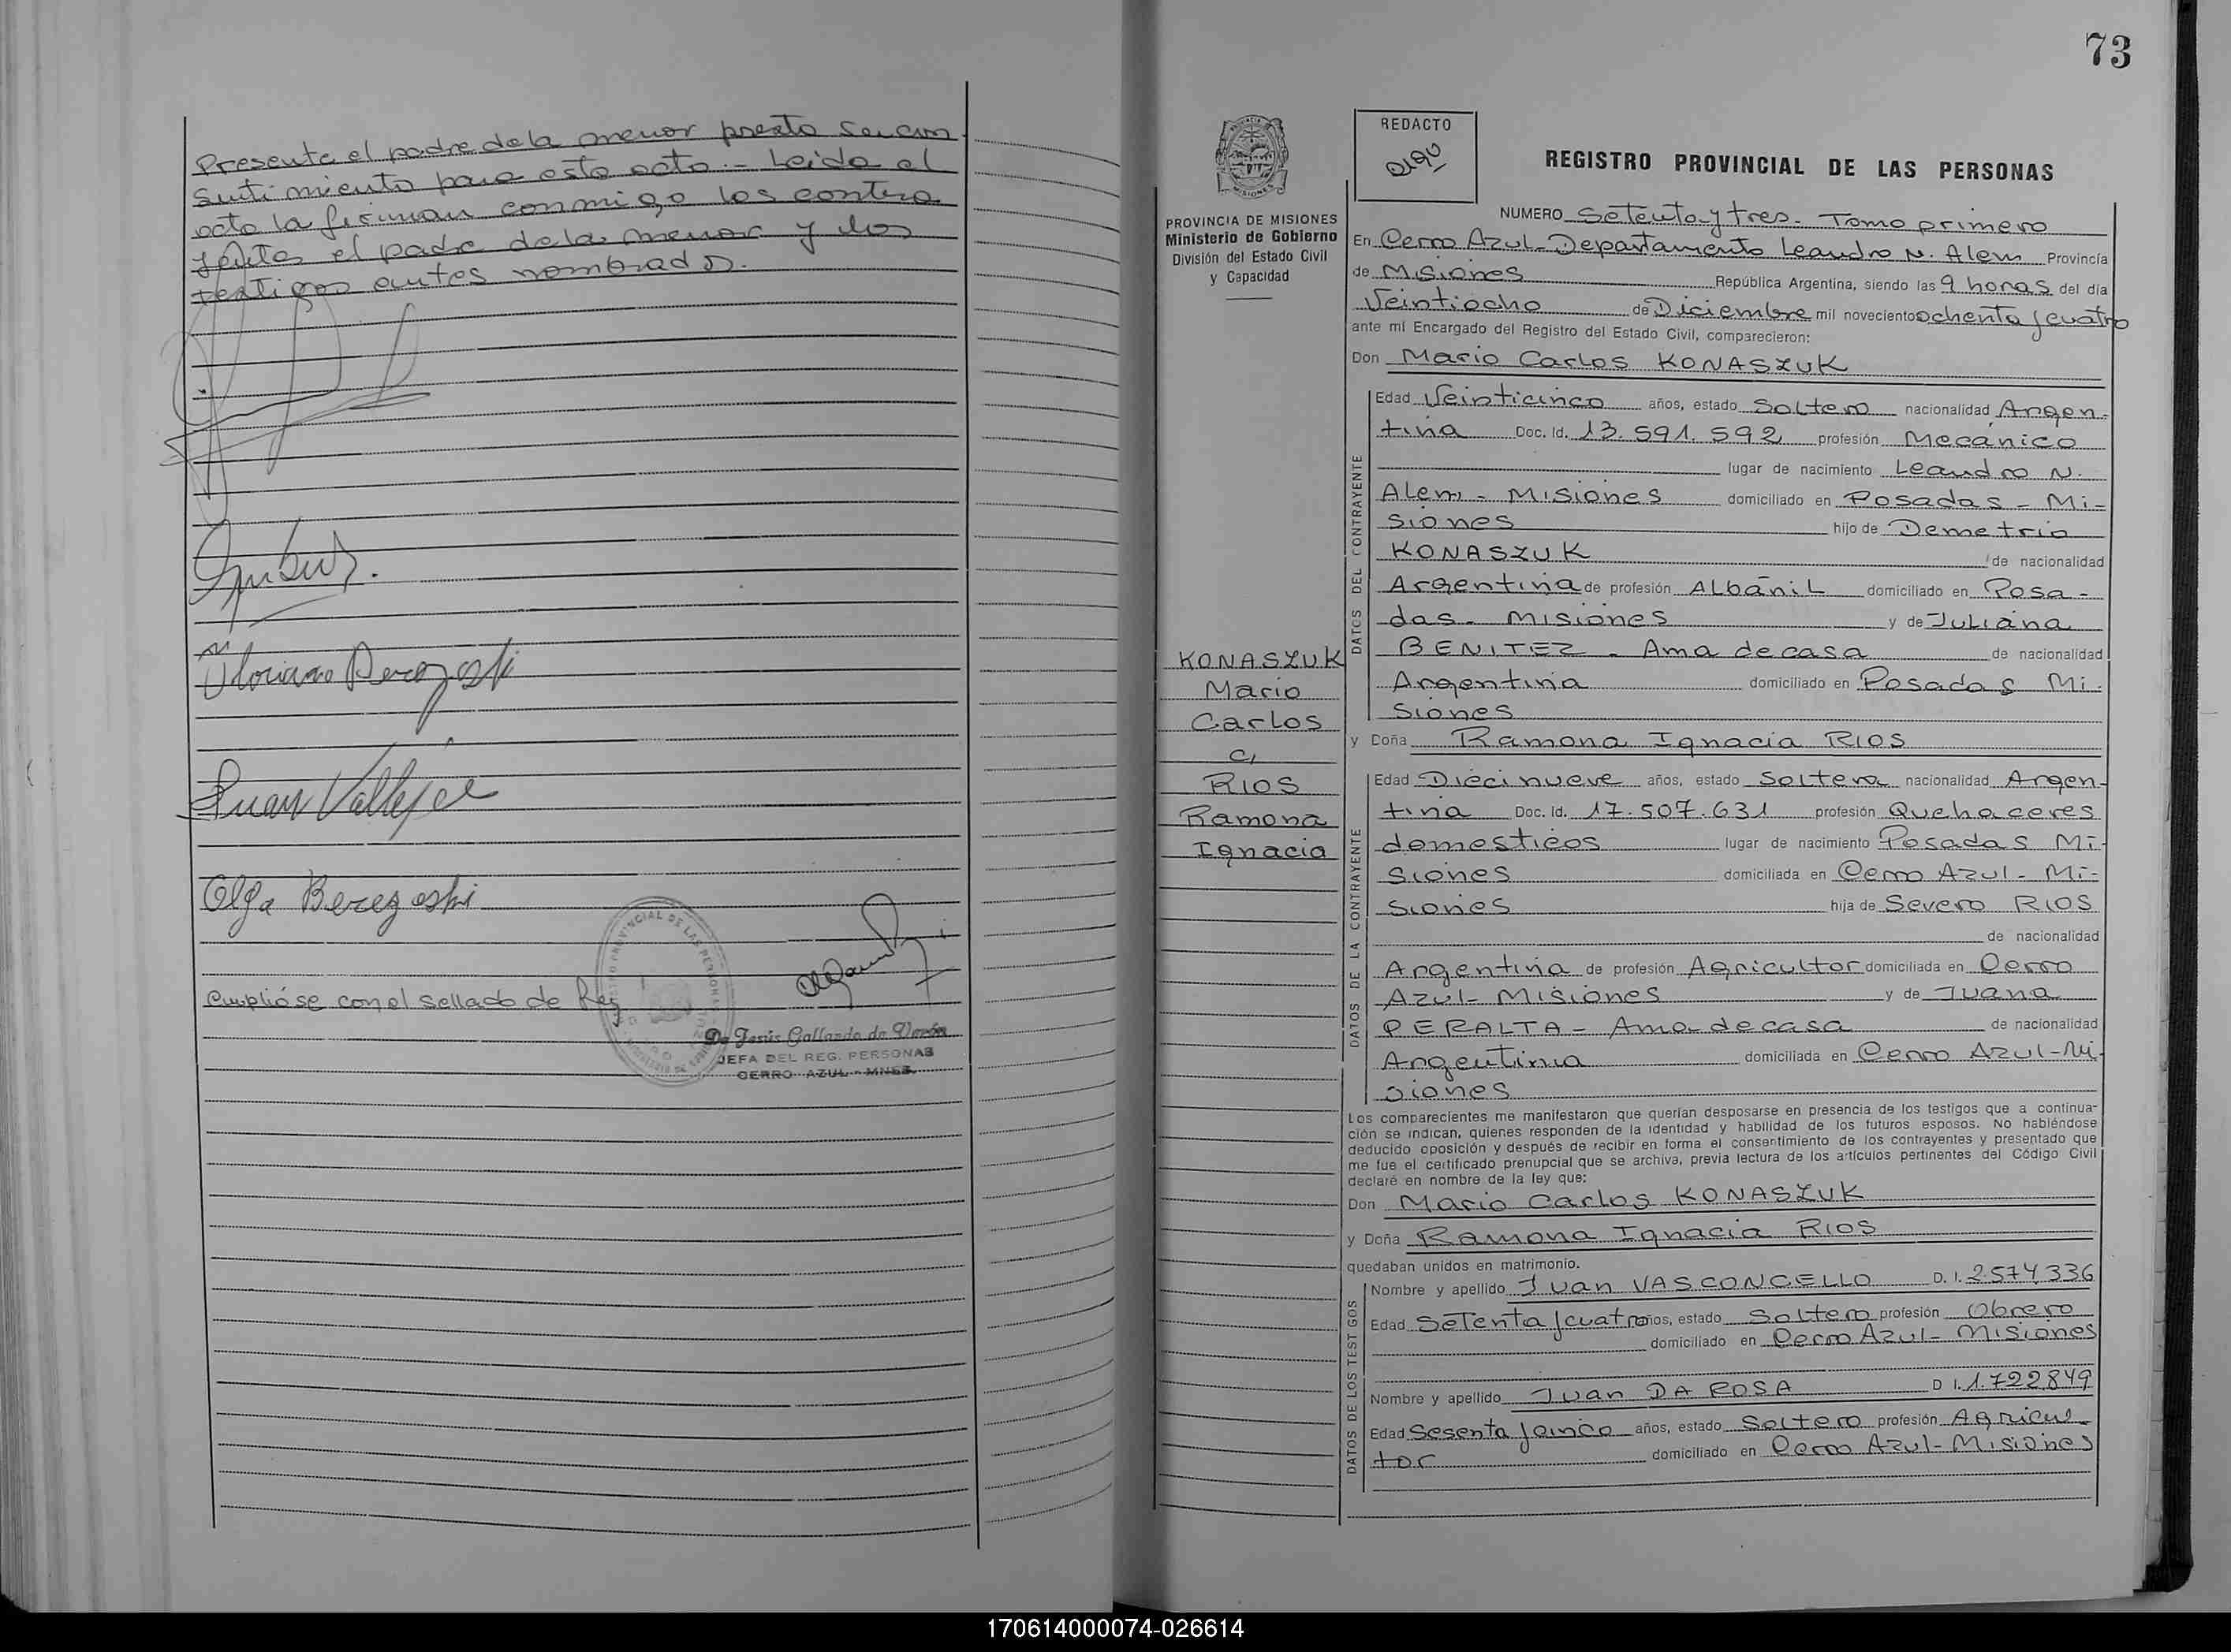 Presente el padre de la menor presta su con
sentimiento para este acto.- Leida el
acta la firman conmigo los contra
yentes el padre de la menor y los
testigos antes nombrados.
Juan Vallejo
Olga Berezoski
Cumplióse con el sellado de Ley
REGISTRO PROVINCIAL DE LAS PERSONAS
JEFA DEL REG. PERSONAS
CERRO AZUL - MNES.
73
PROVINCIA DE MISIONES
Ministerio de Gobierno
División del Estado Civil
y Capacidad
KONASZUK
Mario
Carlos
c/
RIOS
Ramona
Ignacia
REDACTO
REGISTRO PROVINCIAL DE LAS PERSONAS
NUMERO Setenta y tres.- Tomo primero
En Cerro Azul- Departamento Leandro N. Alem Provincia
de Misiones República Argentina, siendo las 9 horas del día
Veintiocho de Diciembre mil novecientos ochenta y cuatro
ante mí Encargado del Registro del Estado Civil, comparecieron:
Don Mario Carlos KONASZUK
DATOS DEL CONTRAYENTE
Edad Veinticinco años, estado Soltero nacionalidad Argen-
tina Doc. Id. 13.591.592 profesión Mecánico
lugar de nacimiento Leandro N.
Alem - Misiones domiciliado en Posadas - Mi-
siones hijo de Demetrio
KONASZUK de nacionalidad
Argentina de profesión Albañil domiciliado en Posa-
das- Misiones y de Juliana
BENITEZ - Ama de casa de nacionalidad
Argentina domiciliado en Posadas Mi-
siones
y Doña Ramona Ignacia RIOS
DATOS DE LA CONTRAYENTE
Edad Diecinueve años, estado Soltera nacionalidad Argen-
tina Doc. Id. 17.507.631 profesión Quehaceres
domesticos lugar de nacimiento Posadas Mi-
siones domiciliada en Cerro Azul- Mi-
siones hija de Severo RIOS
de nacionalidad
Argentina de profesión Agricultor domiciliada en Cerro
Azul- Misiones y de Juana
PERALTA - Ama de casa de nacionalidad
Argentina domiciliada en Cerro Azul-Mi-
siones
Los comparecientes me manifestaron que querían desposarse en presencia de los testigos que a continua-
ción se indican, quienes responden de la identidad y habilidad de los futuros esposos. No habiéndose
deducido oposición y después de recibir en forma el consentimiento de los contrayentes y presentado que
me fue el certificado prenupcial que se archiva, previa lectura de los artículos pertinentes del Código Civil
declaré en nombre de la ley que:
Don Mario Carlos KONASZUK
y Doña Ramona Ignacia RIOS
quedaban unidos en matrimonio.
DATOS DE LOS TESTIGOS
Nombre y apellido Juan VASCONCELLO D. I. 2.574.336
Edad Setenta y cuatro años, estado Soltero profesión Obrero
domiciliado en Cerro Azul- Misiones
Nombre y apellido Juan DA ROSA D I. 1.722.849
Edad Sesenta y cinco años, estado Soltero profesión Agricul-
tor domiciliado en Cerro Azul- Misiones
170614000074-026614